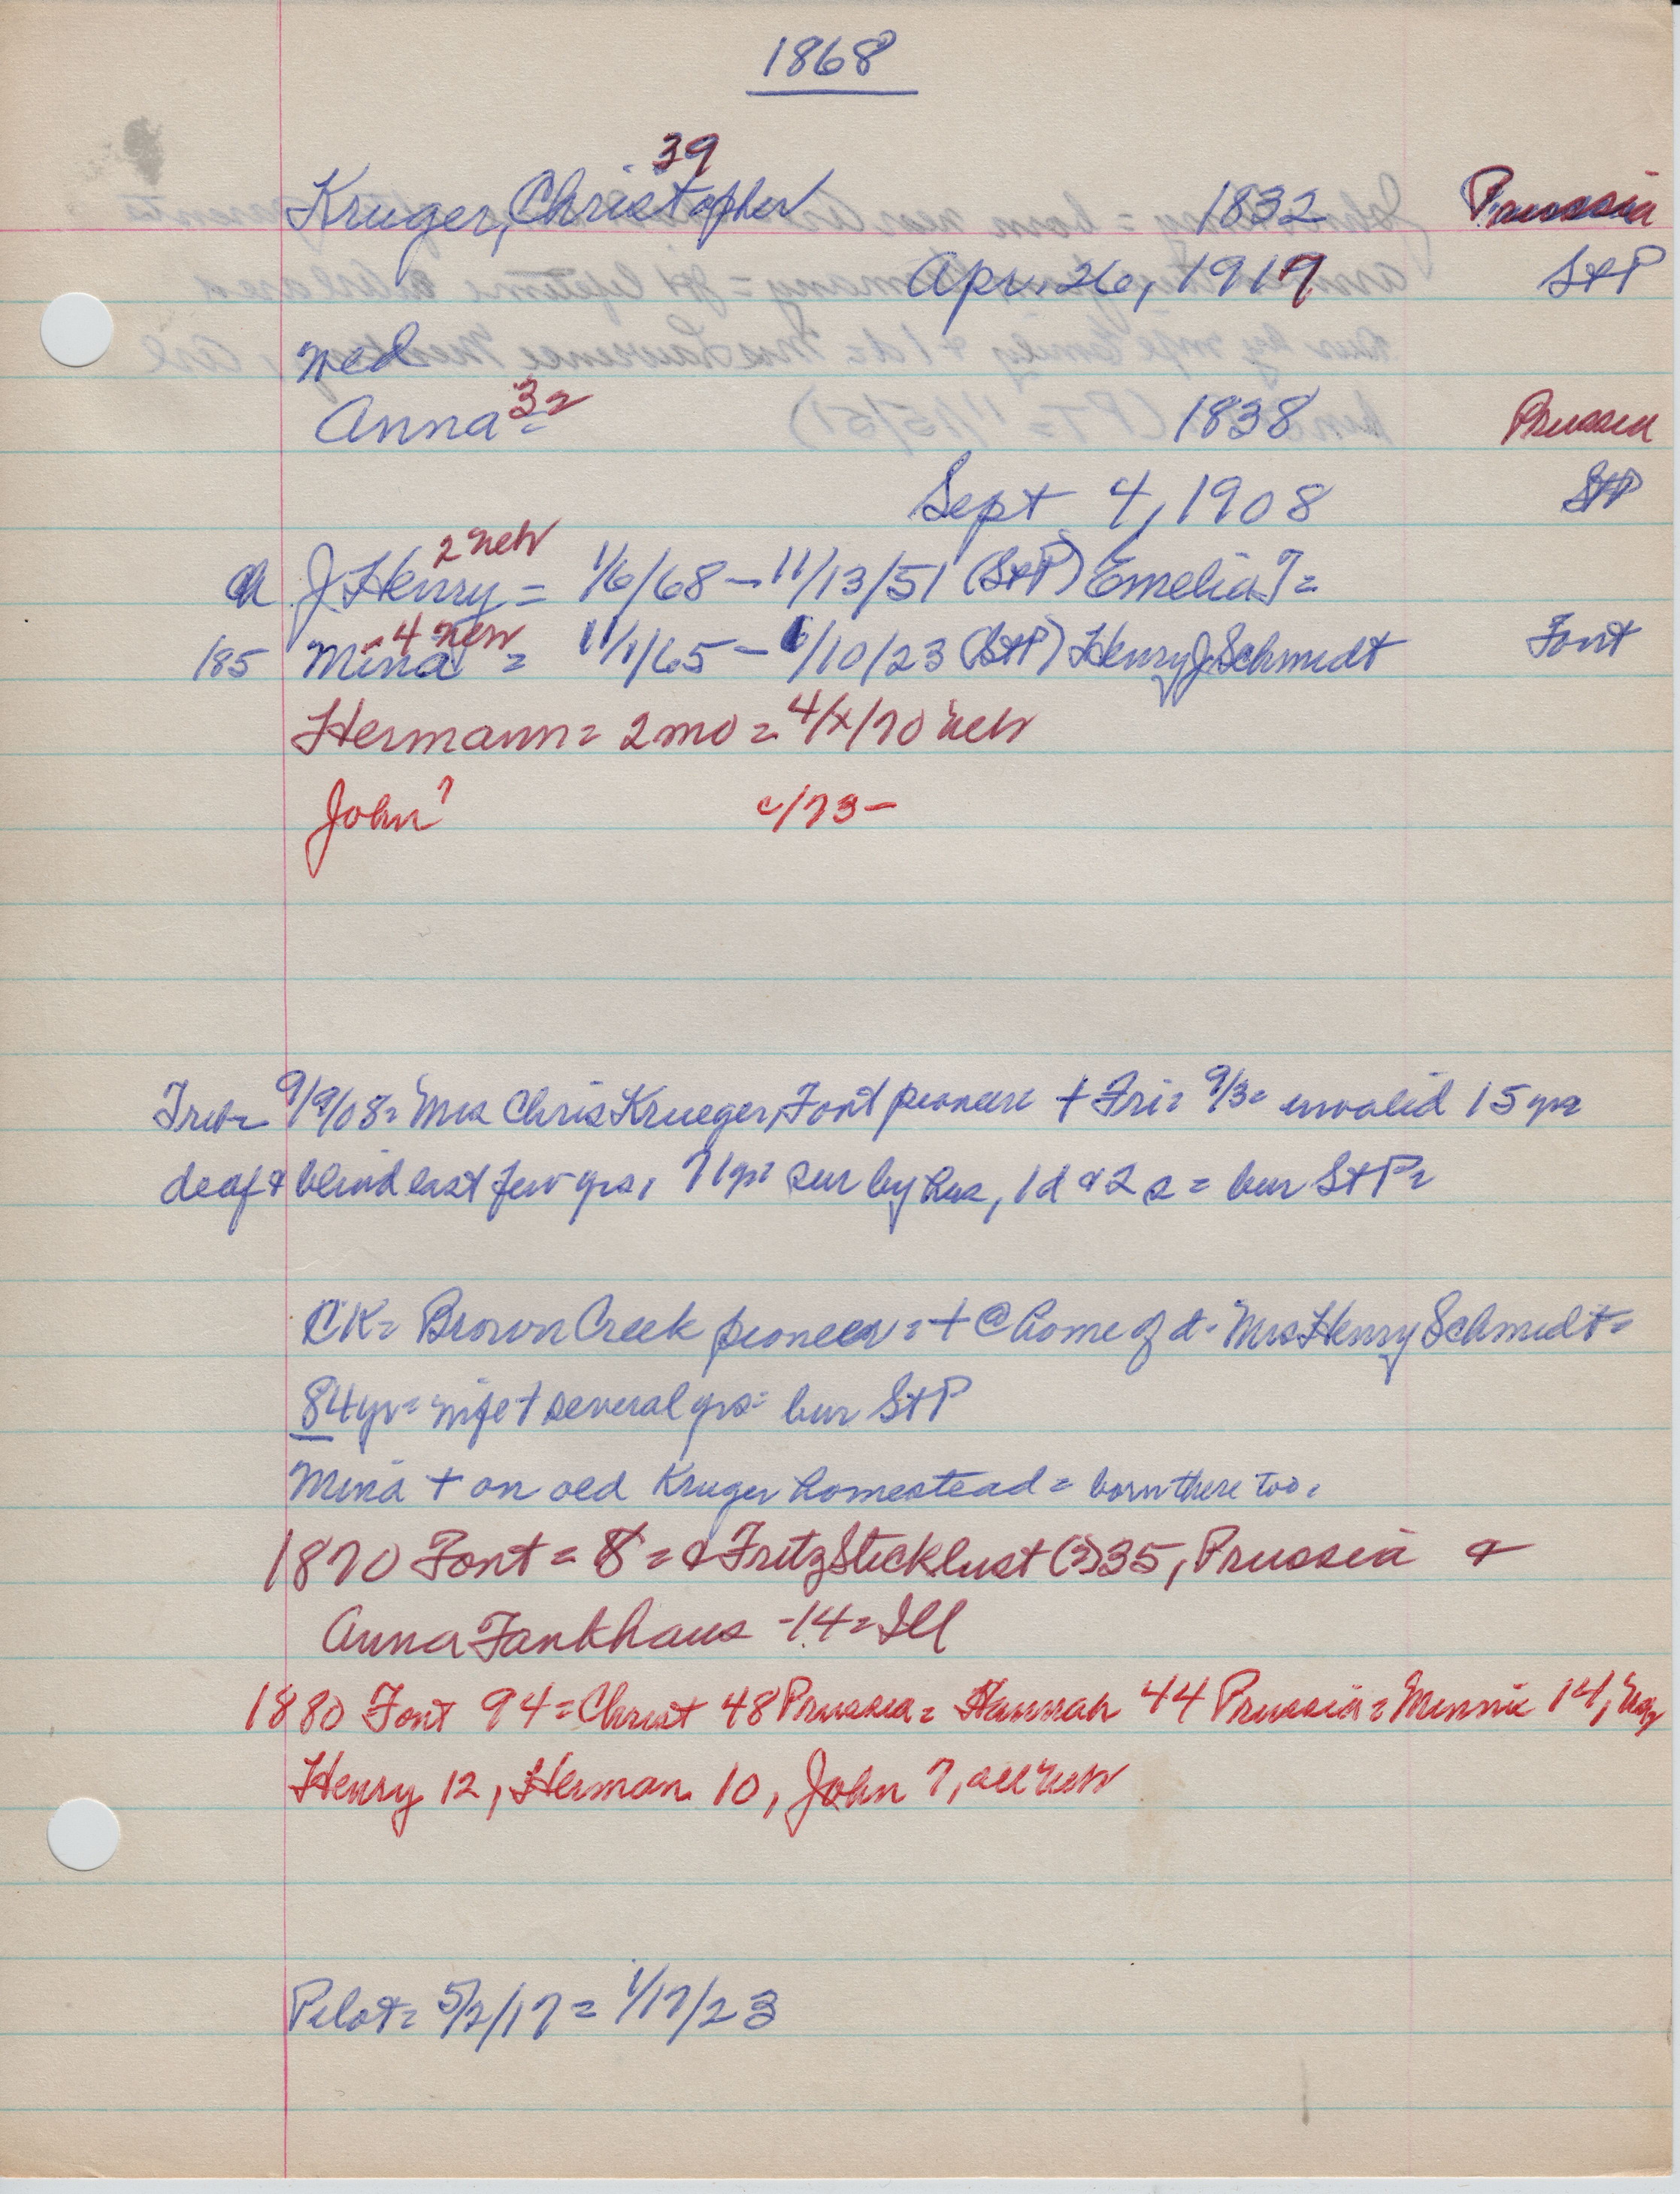 1868
39
Kruger, Christopher 1832 Prussia
Apr. 26, 1917 StP
wed
Anna 32 1838 Prussia
Sept 4, 1908 StP
2 neb
ch J Henry = 1/6/68 - 11/13/51 (StP) Emelia T=
4 neb
185 Mina = 11/1/65 - 1/10/23 (StP) Henry J Schmidt Font
Hermann = 2 mo = 4/x/70 neb
John? c/73-
Trib= 9/9/08= Mrs Chris Krueger, Font pioneer + Fri= 9/3= invalid 15 yrs
deaf & blind last few yrs, 71 yr= sur by hus, 1 d & 2 s = bur StP=
CK= Brown Creek pioneer = + @ home of d- Mrs Henry Schmidt=
84 yr= wife + several yrs= bur StP
Mina + on old Kruger homestead = born there too.
1870 Font = 8 = & Fritz Stecklust (?) 35, Prussia &
Anna Fankhaus -14= Ill
1880 Font 94 = Christ 48 Prussia = Hannah 44 Prussia = Minnie 14,
Henry 12, Herman 10, John 7, all neb
Pilot= 5/2/17 = 1/17/23